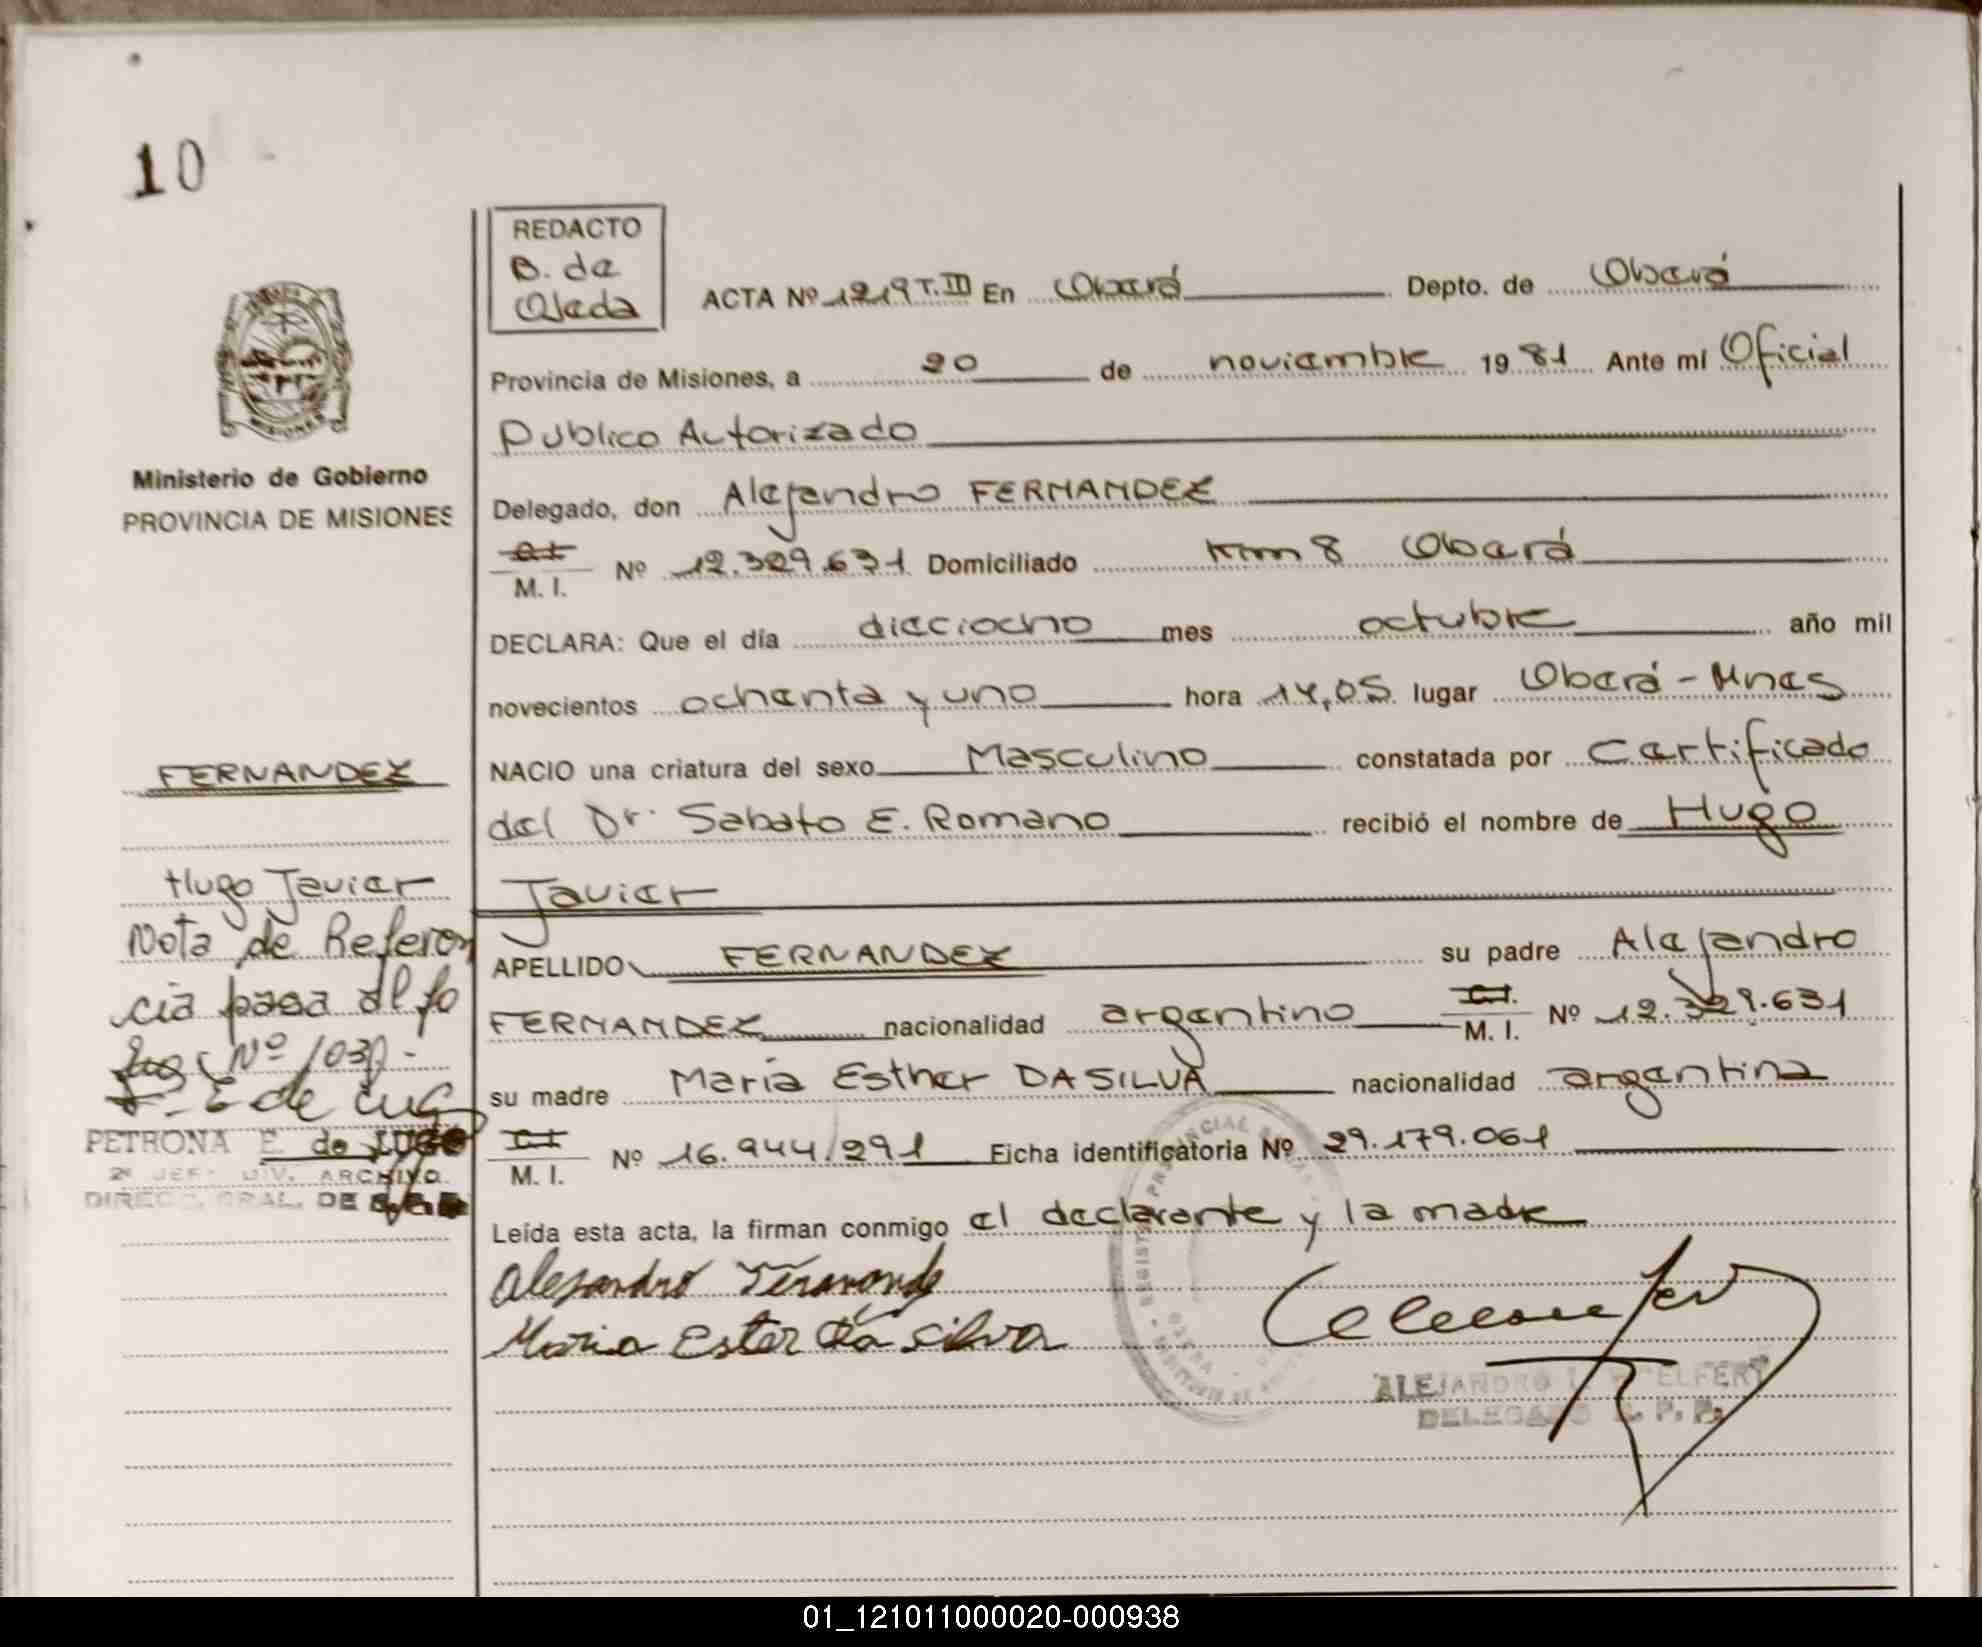 10
REDACTO
B. de
Ojeda
ACTA Nº 1219 T.III En Oberá Depto. de Oberá
Provincia de Misiones, a 20 de noviembre 1981 Ante mí Oficial
Publico Autorizado
Delegado, don Alejandro FERNANDEZ
C.I.
M. I. Nº 12.329.631 Domiciliado Km 8 Oberá
DECLARA: Que el día dieciocho mes octubre año mil
novecientos ochenta y uno hora 14,05 lugar Oberá - Mnes
NACIO una criatura del sexo Masculino constatada por Certificado
del Dr. Sabato E. Romano recibió el nombre de Hugo
Javier
APELLIDO FERNANDEZ su padre Alejandro
FERNANDEZ nacionalidad argentino C.I. M. I. Nº 12.329.631
su madre Maria Esther DA SILVA nacionalidad argentina
C.I.
M. I. Nº 16.944.291 Ficha identificatoria Nº 29.179.061
Leída esta acta, la firman conmigo el declarante y la madre
Maria Ester Da Silva
ALEJANDRO
DELEGADO R. P. P.
Ministerio de Gobierno
PROVINCIA DE MISIONES
FERNANDEZ
Hugo Javier
Nota de Referen
cia pasa al fo
Nº 103
PETRONA E. de LUGO
2º JEFE DIV. ARCHIVO
DIREC. GRAL. DE
MISIONES
01_121011000020-000938